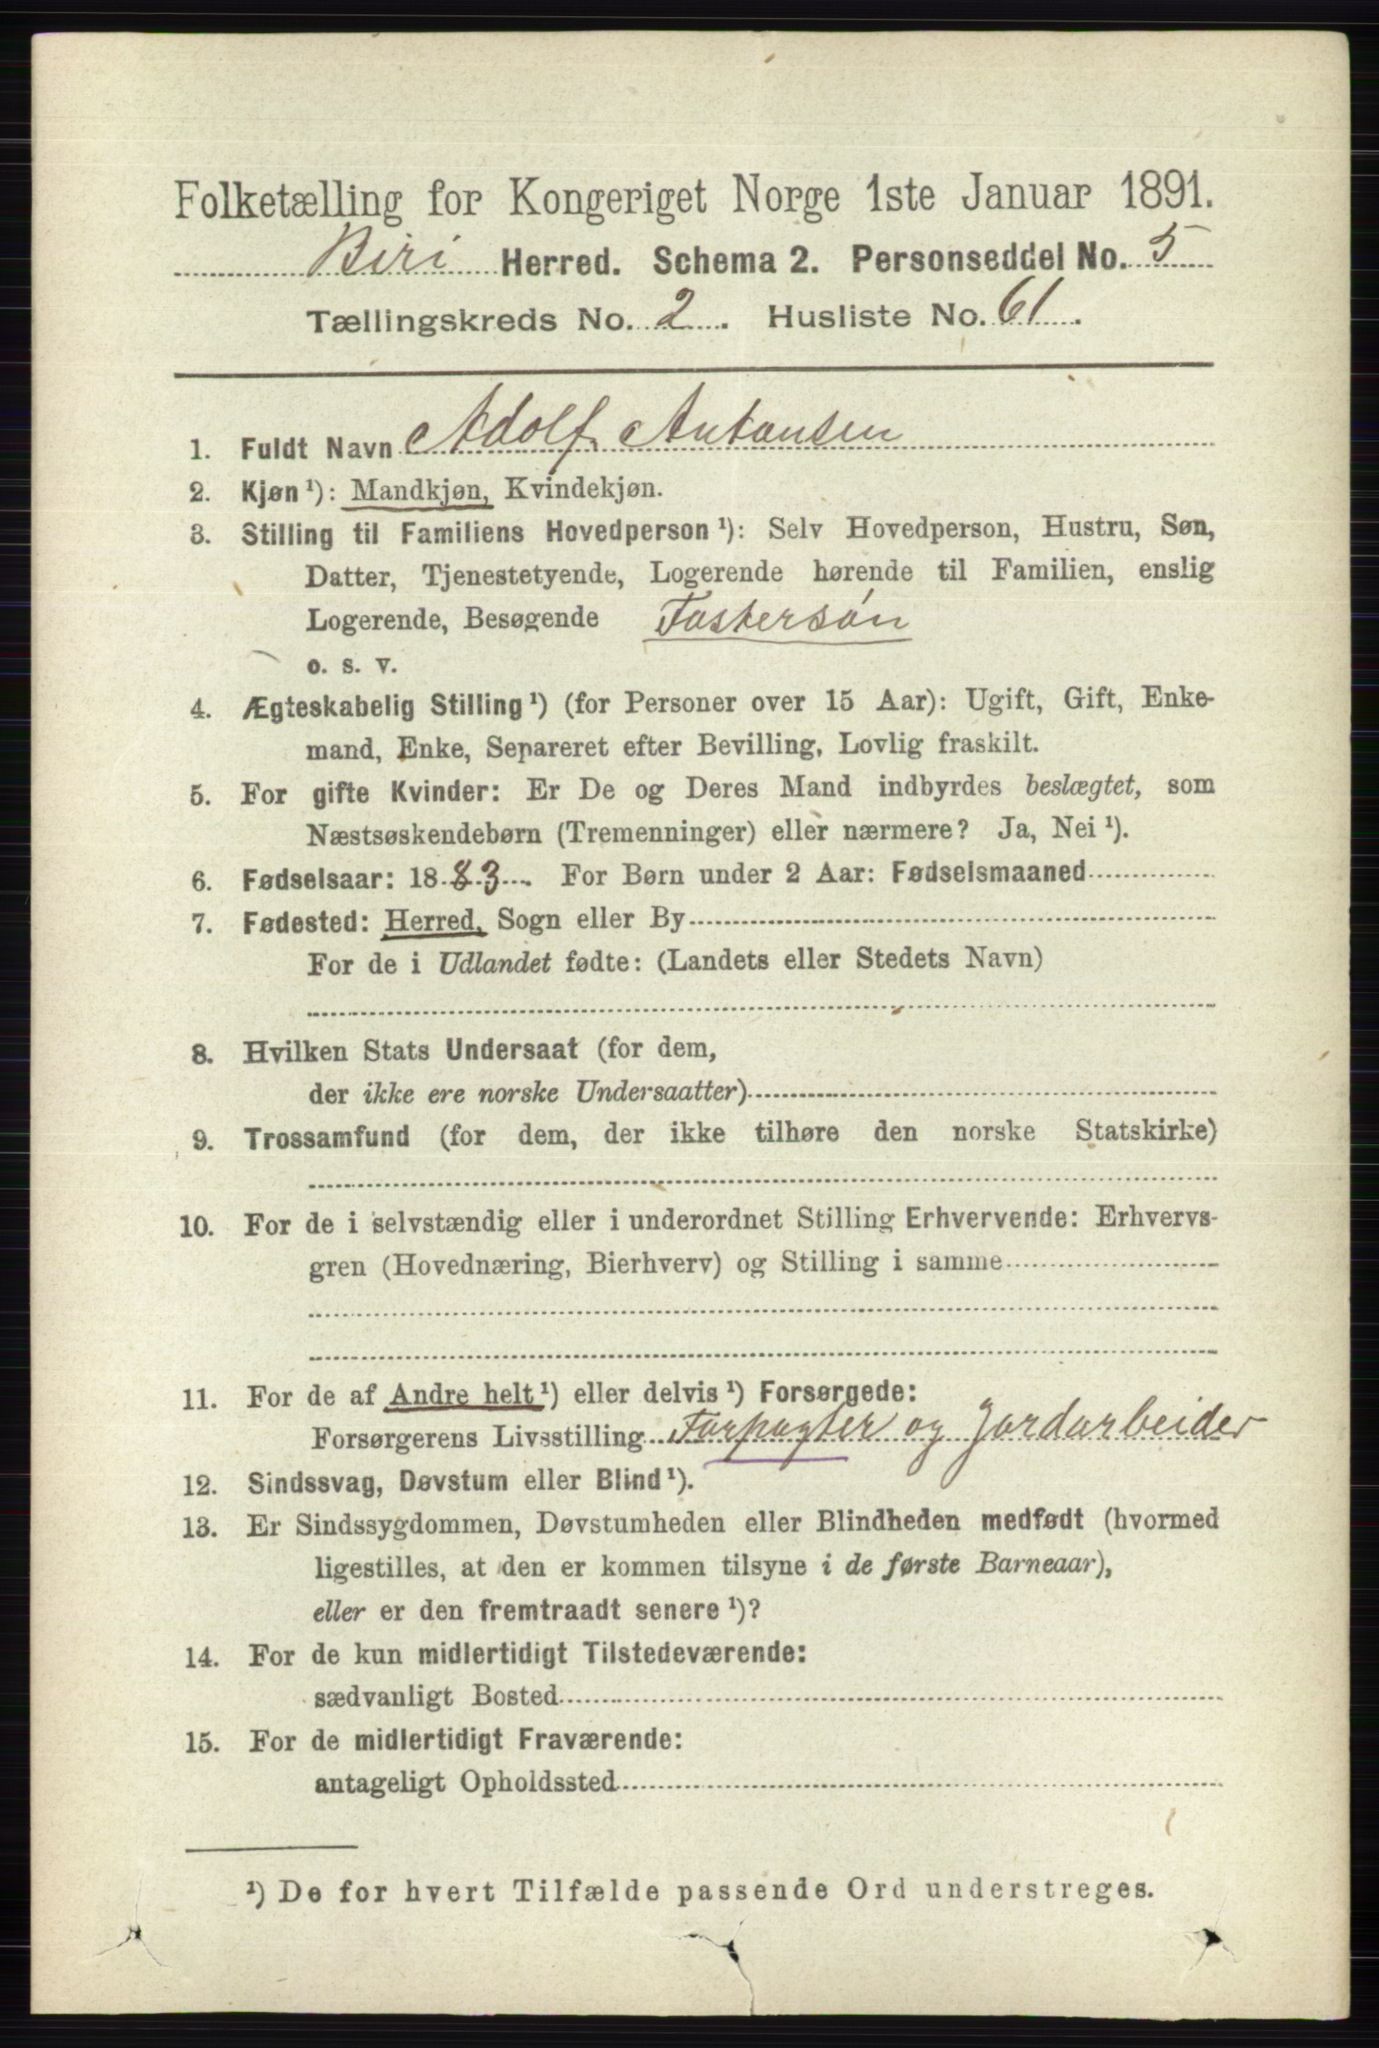 Folketælling for Kongeriget Norge 1ste Januar 1891.
Biri Herred. Schema 2. Personseddel No. 5
Tællingskreds No. 2. Husliste No. 61.
1. Fuldt Navn Adolf Antonsen
2. Kjøn¹): Mandkjøn, Kvindekjøn.
3. Stilling til Familiens Hovedperson¹): Selv Hovedperson, Hustru, Søn,
Datter, Tjenestetyende, Logerende hørende til Familien, enslig
Logerende, Besøgende Fostersøn
o. s. v.
4. Ægteskabelig Stilling¹) (for Personer over 15 Aar): Ugift, Gift, Enke-
mand, Enke, Separeret efter Bevilling, Lovlig fraskilt.
5. For gifte Kvinder: Er De og Deres Mand indbyrdes beslægtet, som
Næstsøskendebørn (Tremenninger) eller nærmere? Ja, Nei¹).
6. Fødselsaar: 1883. For Børn under 2 Aar: Fødselsmaaned
7. Fødested: Herred, Sogn eller By
For de i Udlandet fødte: (Landets eller Stedets Navn)
8. Hvilken Stats Undersaat (for dem,
der ikke ere norske Undersaatter)
9. Trossamfund (for dem, der ikke tilhøre den norske Statskirke)
10. For de i selvstændig eller i underordnet Stilling Erhvervende: Erhvervs-
gren (Hovednæring, Bierhverv) og Stilling i samme
11. For de af Andre helt¹) eller delvis¹) Forsørgede:
Forsørgerens Livsstilling Forpagter og Jordarbeider
12. Sindssvag, Døvstum eller Blind¹).
13. Er Sindssygdommen, Døvstumheden eller Blindheden medfødt (hvormed
ligestilles, at den er kommen tilsyne i de første Barneaar),
eller er den fremtraadt senere¹)?
14. For de kun midlertidigt Tilstedeværende:
sædvanligt Bosted
15. For de midlertidigt Fraværende:
antageligt Opholdssted
¹) De for hvert Tilfælde passende Ord understreges.